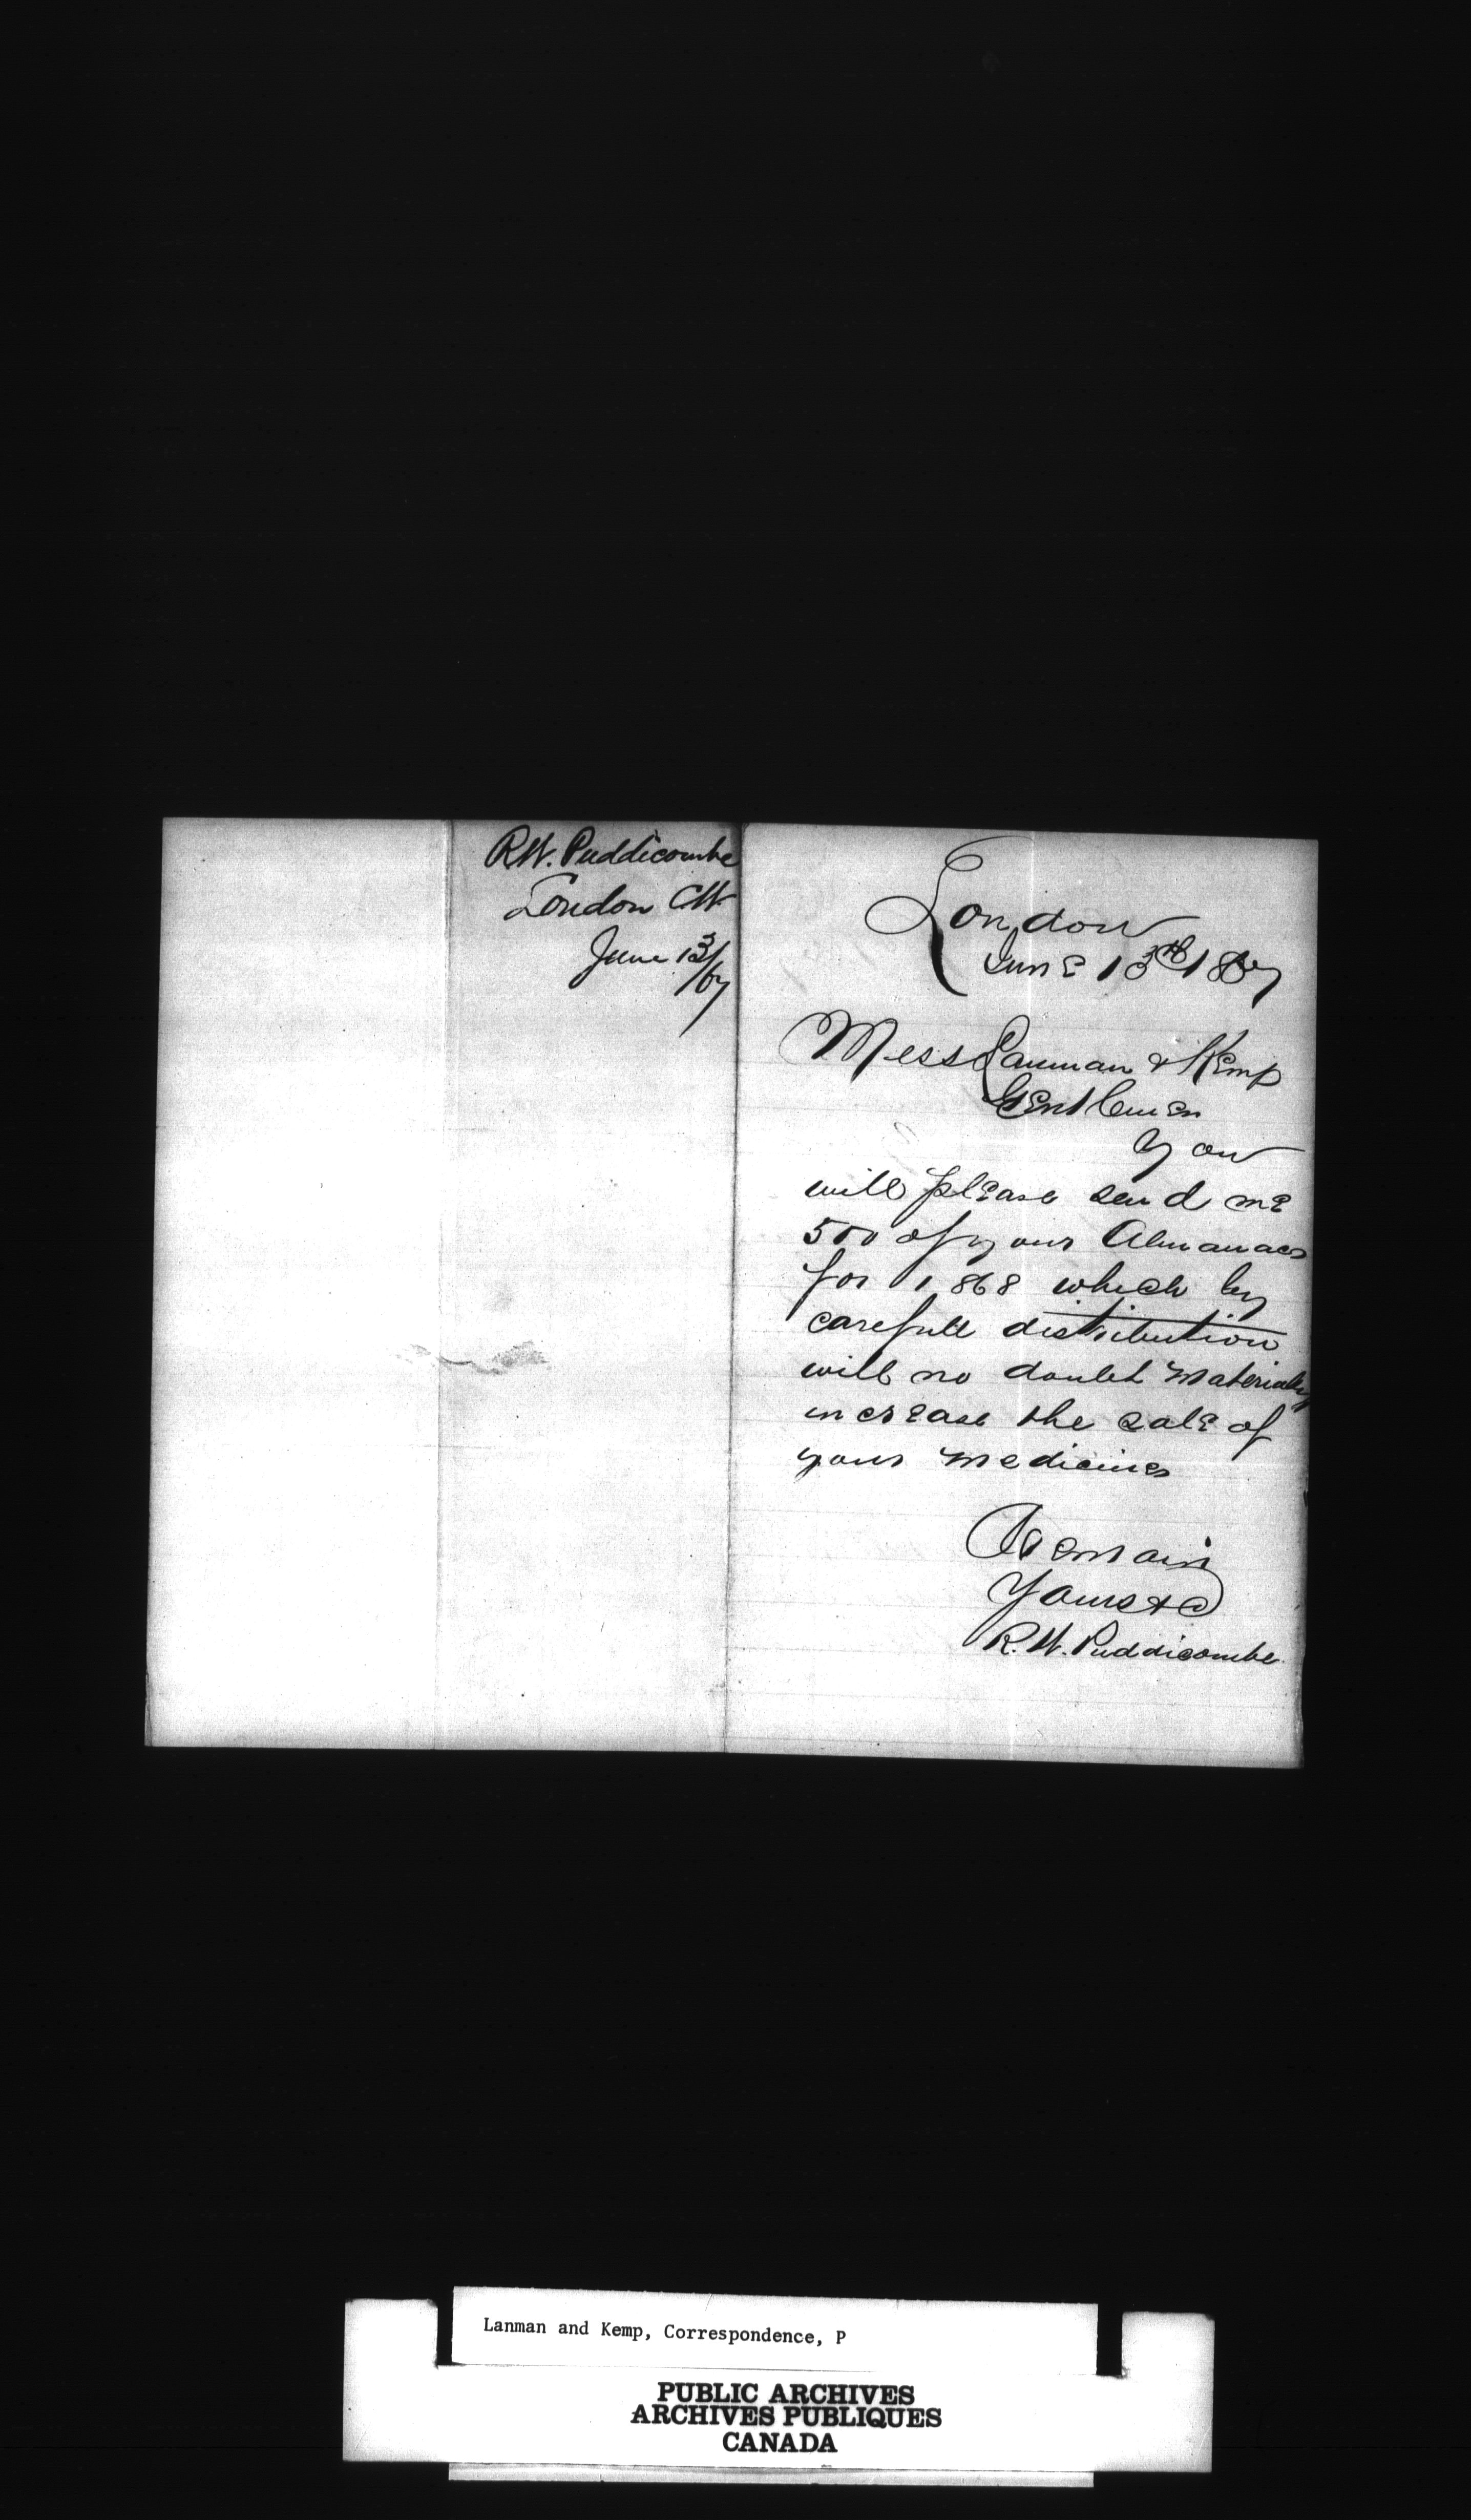 R.W. Puddicombe
London CW
June 13/67
London
June 13th 1867
Mess Lanman & Kemp
Gentlemen
You
will please send me
500 of your Almanacs
for 1868 which by
carefull distribution
will no doubt materially
increase the sale of
your medicines
Remain
Yours &c
R.W. Puddicombe.
Lanman and Kemp, Correspondence, P
PUBLIC ARCHIVES
ARCHIVES PUBLIQUES
CANADA